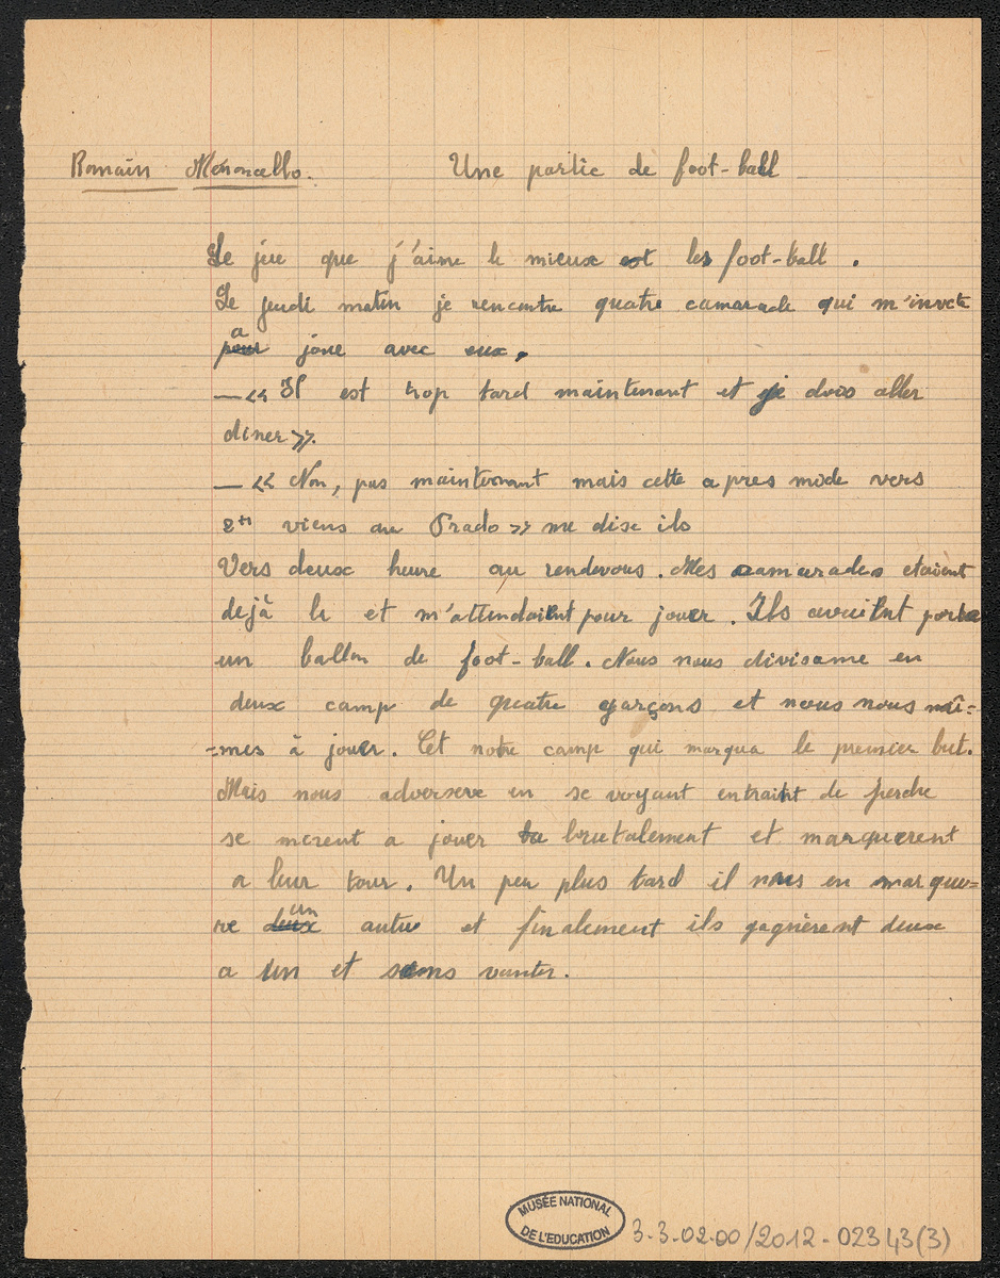 Romain Mononcello. Une partie de foot-ball
Le jeu que j'aime le mieux est les foot-ball .
Le jeudi matin je rencontre quatre camarade qui m'invite
a
pour joue avec eux.
—« Il est trop tard maintenant et je dois aller
diner ».
— « Non, pas maintenant mais cette apres mide vers
2h viens au Prado » me dise ils
Vers deux heure au rendevous. Mes camarades etaient
dejà le et m'attendaient pour jouer. Ils avaient porte
un ballon de foot-ball. Nous nous divisame en
deux camp de quatre garçons et nous nous mî=
=mes à jouer. Cet notre camp qui marqua le premier but.
Mais nous adversere en se voyant entraint de perdre
se mirent a jouer brutalement et marquerent
a leur tour. Un peu plus tard il nous en marque=
un
re deux autre et finalement ils gagnèrent deux
a un et sans vanter.
MUSÉE NATIONAL
DE L'EDUCATION
3-3-02-00/2012-02343(3)